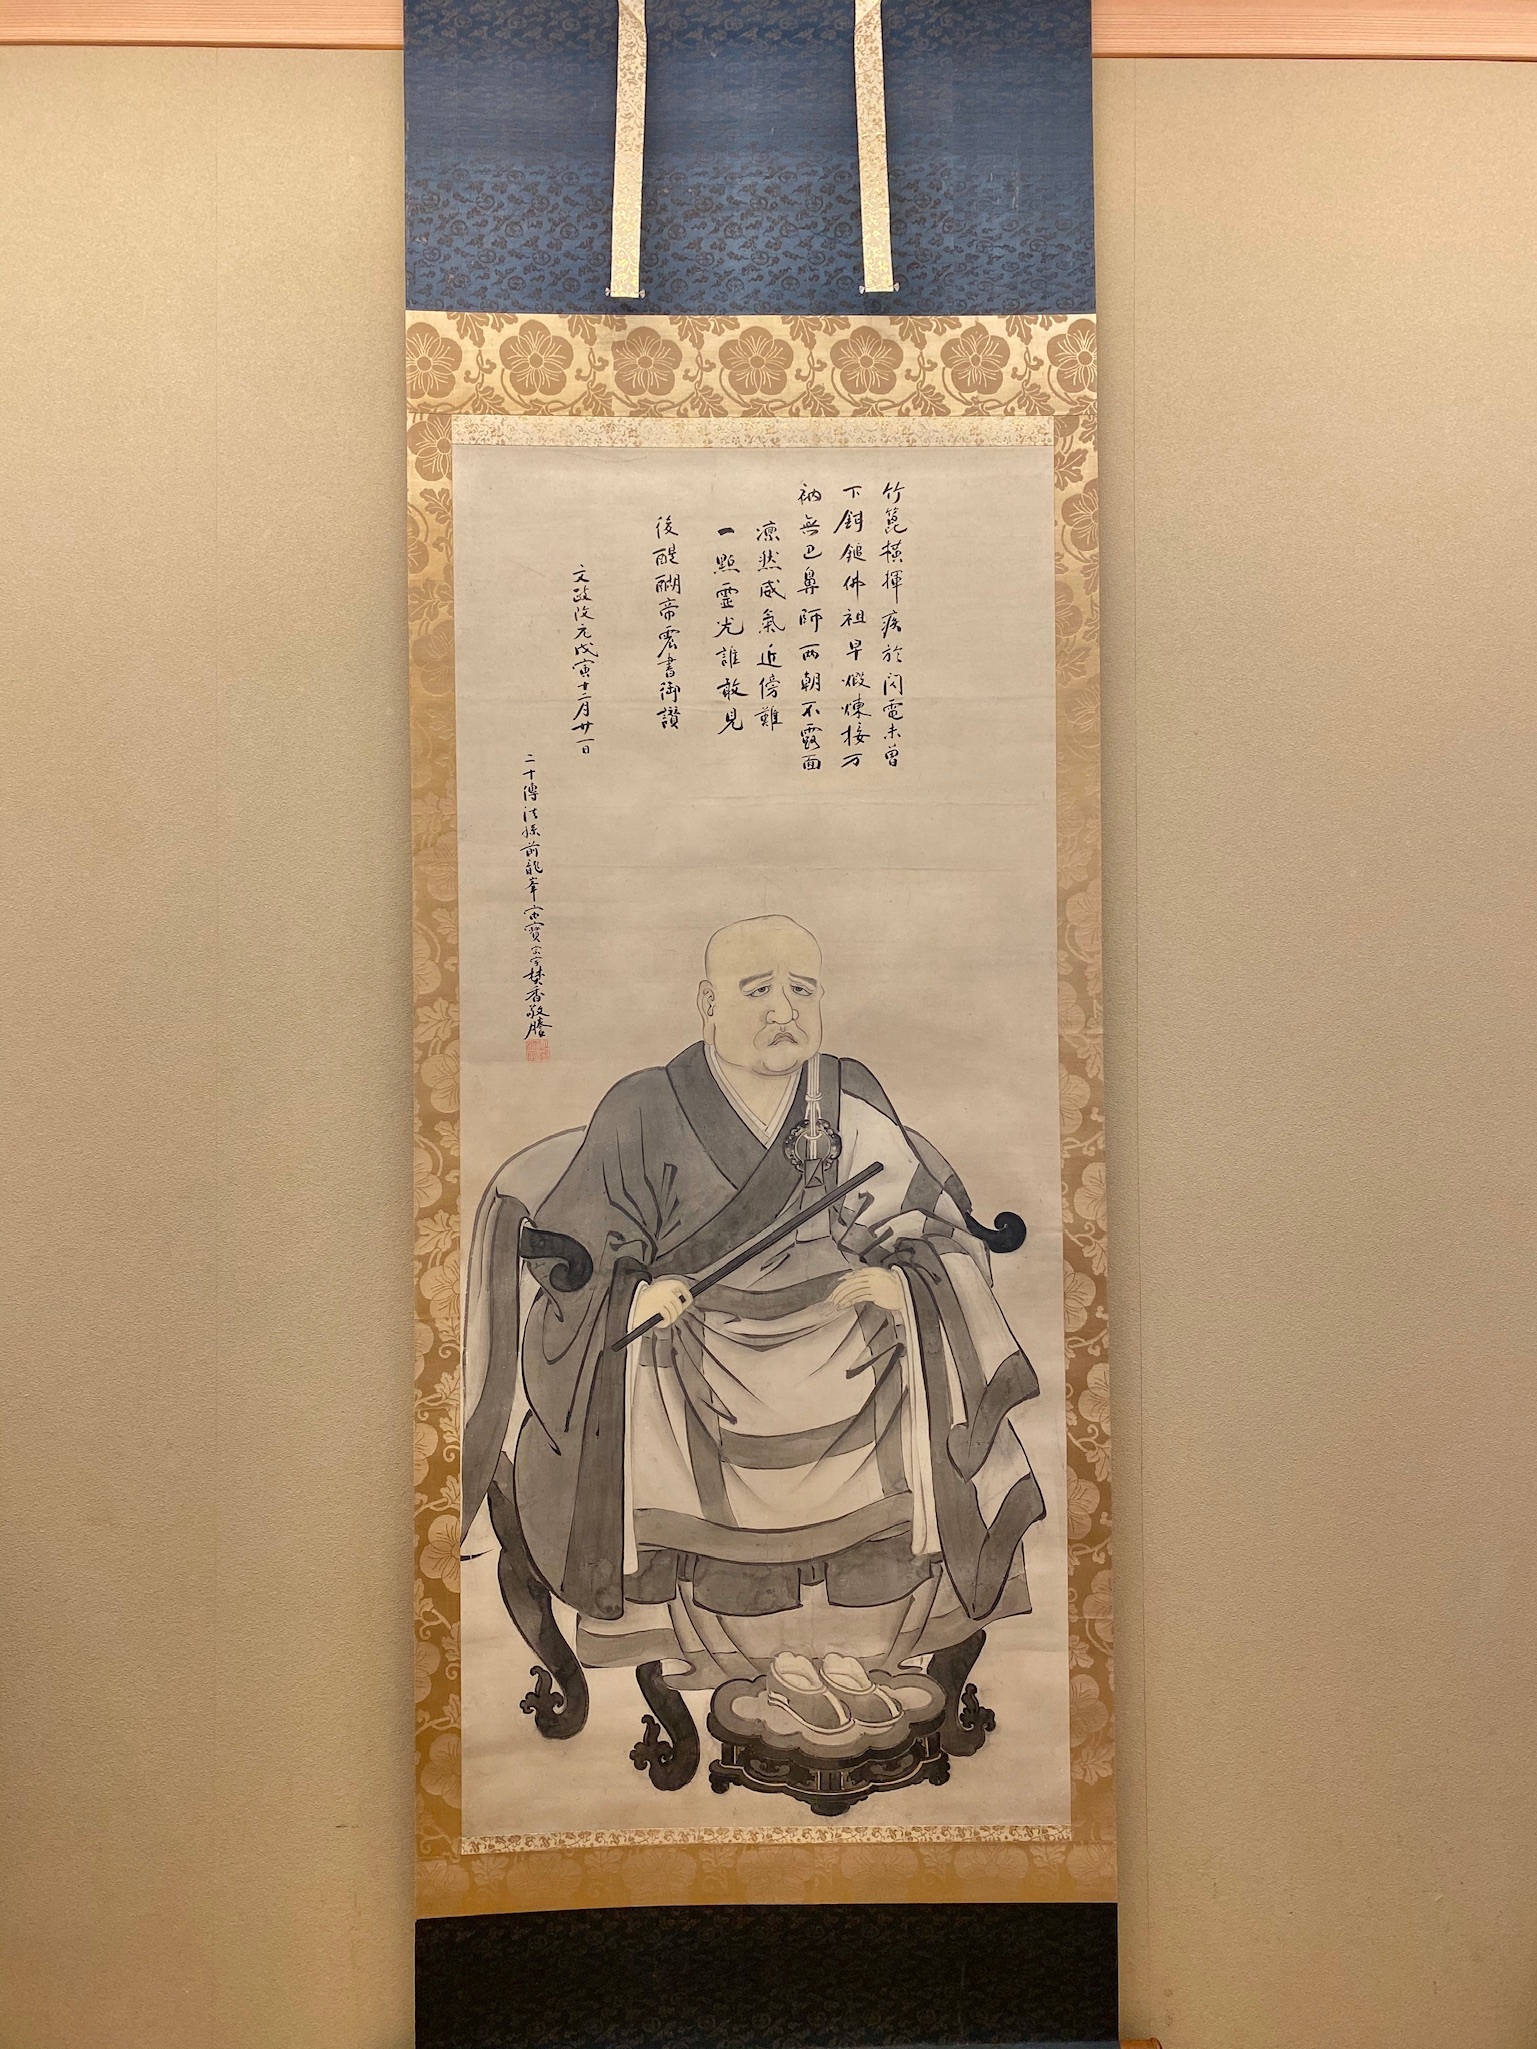 竹篦橫揮疾於閃電未曽
下鉗鎚佛祖早煆煉接万
衲無巴鼻師两朝不露面
凛然威氣近傍難
一㸃霊光誰敢見
後醍醐帝宸書御讃
文政改元戊寅十二月廿一日
二十傳法孫前龍峯宙寶宗宇焚香敬謄